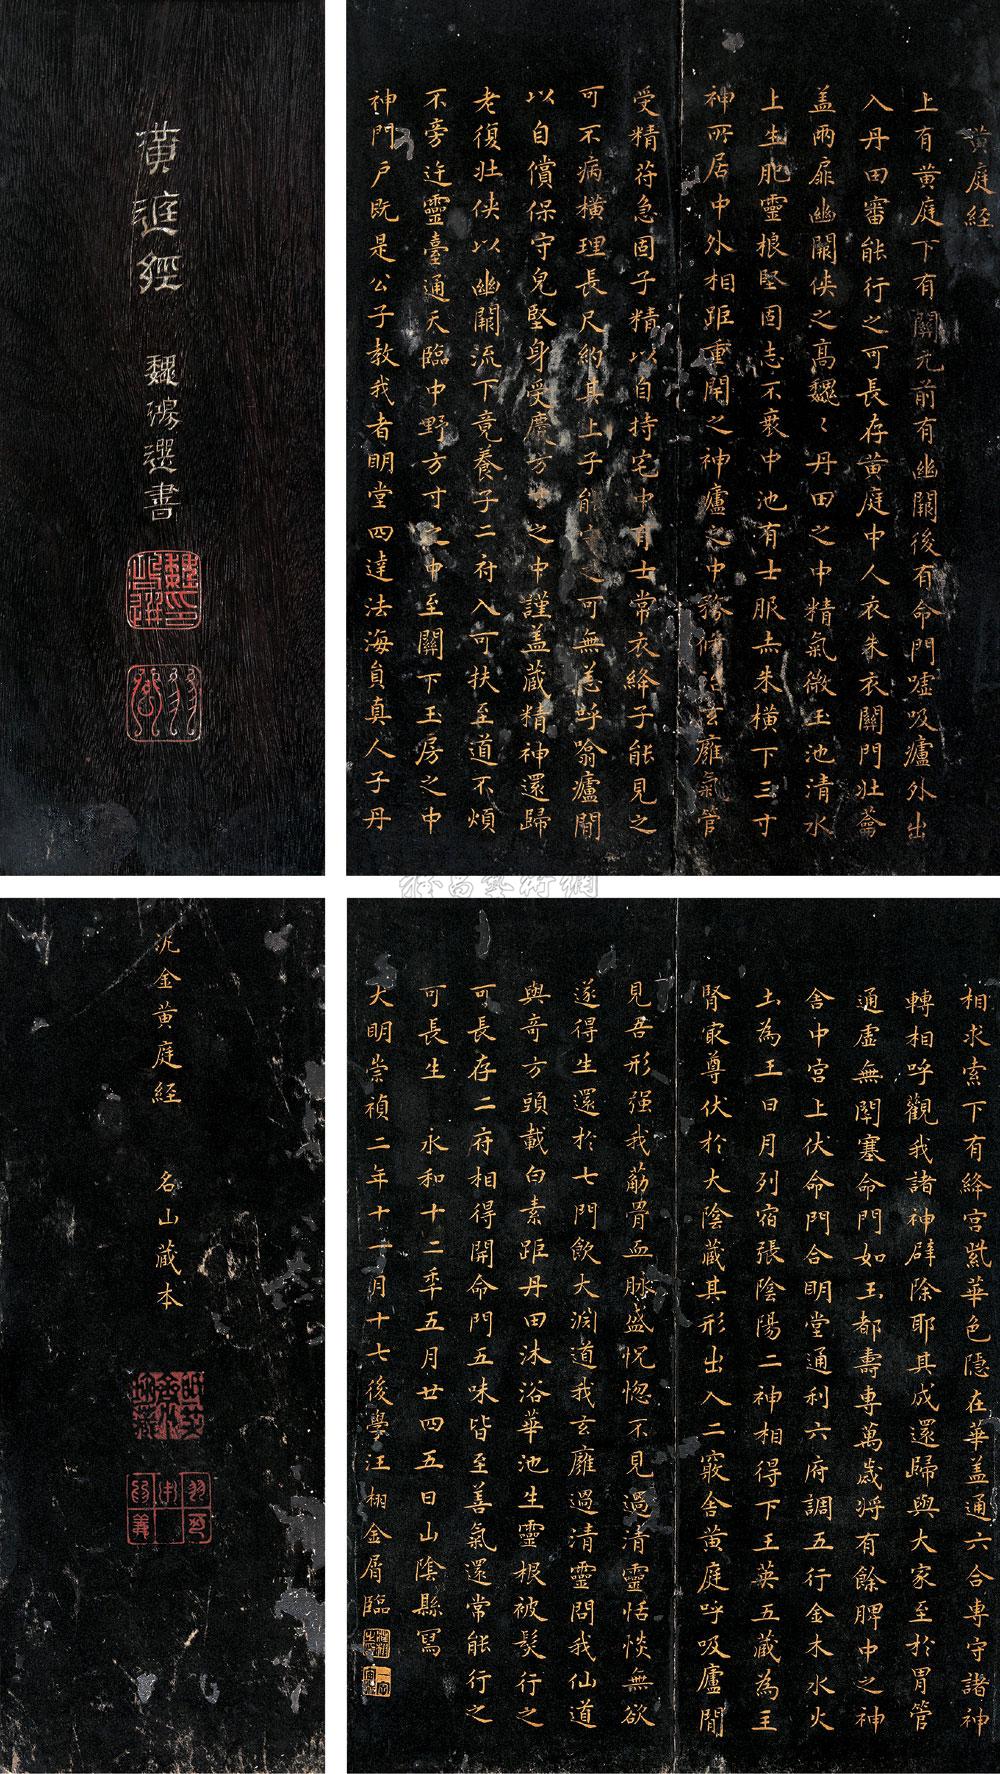 黄庭經
魏錫選書
黄庭经
上有黄庭下有關元前有幽闕後有命門噓吸廬外出
入丹田審能行之可長存黄庭中人衣朱衣關門壯籥
盖兩扉幽關俠之高魏〻丹田之中精氣微玉池清水
上生肥靈根堅固志不衰中池有士服赤朱橫下三寸
神所居中外相距重閇之神廬之中務修治玄廱氣管
受精苻急固子精以自持宅中有士常衣絳子能見之
可不病橫理長尺約其上子能守之可無恙呼翕廬閒
以自償保守皃堅身受慶方寸之中謹盖藏精神還歸
老復壯俠以幽闕流下竟養子二府入可扶至道不煩
不旁迕靈臺通天臨中野方寸之中至關下玉房之中
神門户既是公子教我者明堂四達法海員真人子丹
泥金黄庭経
名山藏本
相求索下有絳宮紫華色隱在華盖通六合専守諸神
轉相呼觀我諸神辟除耶其成還歸與大家至於胃管
通虚無閉塞命門如玉都壽専萬歲将有餘脾中之神
舎中宮上伏命門合明堂通利六府調五行金木水火
土為王日月列宿張陰陽二神相得下玉英五藏為主
腎㝡尊伏於大陰藏其形出入二竅舎黄庭呼吸廬閒
見吾形强我筋骨血脉盛怳惚不見過清靈恬惔無欲
遂得生還於七門飲大淵道我玄廱過清靈問我仙道
與竒方頭載白素距丹田沐浴華池生靈根被髮行之
可長存二府相得開命門五味皆至善氣還常能行之
可長生　永和十二年五月廿四五日山陰縣冩
大明崇禎二年十一月十七後學汪栩金屑臨